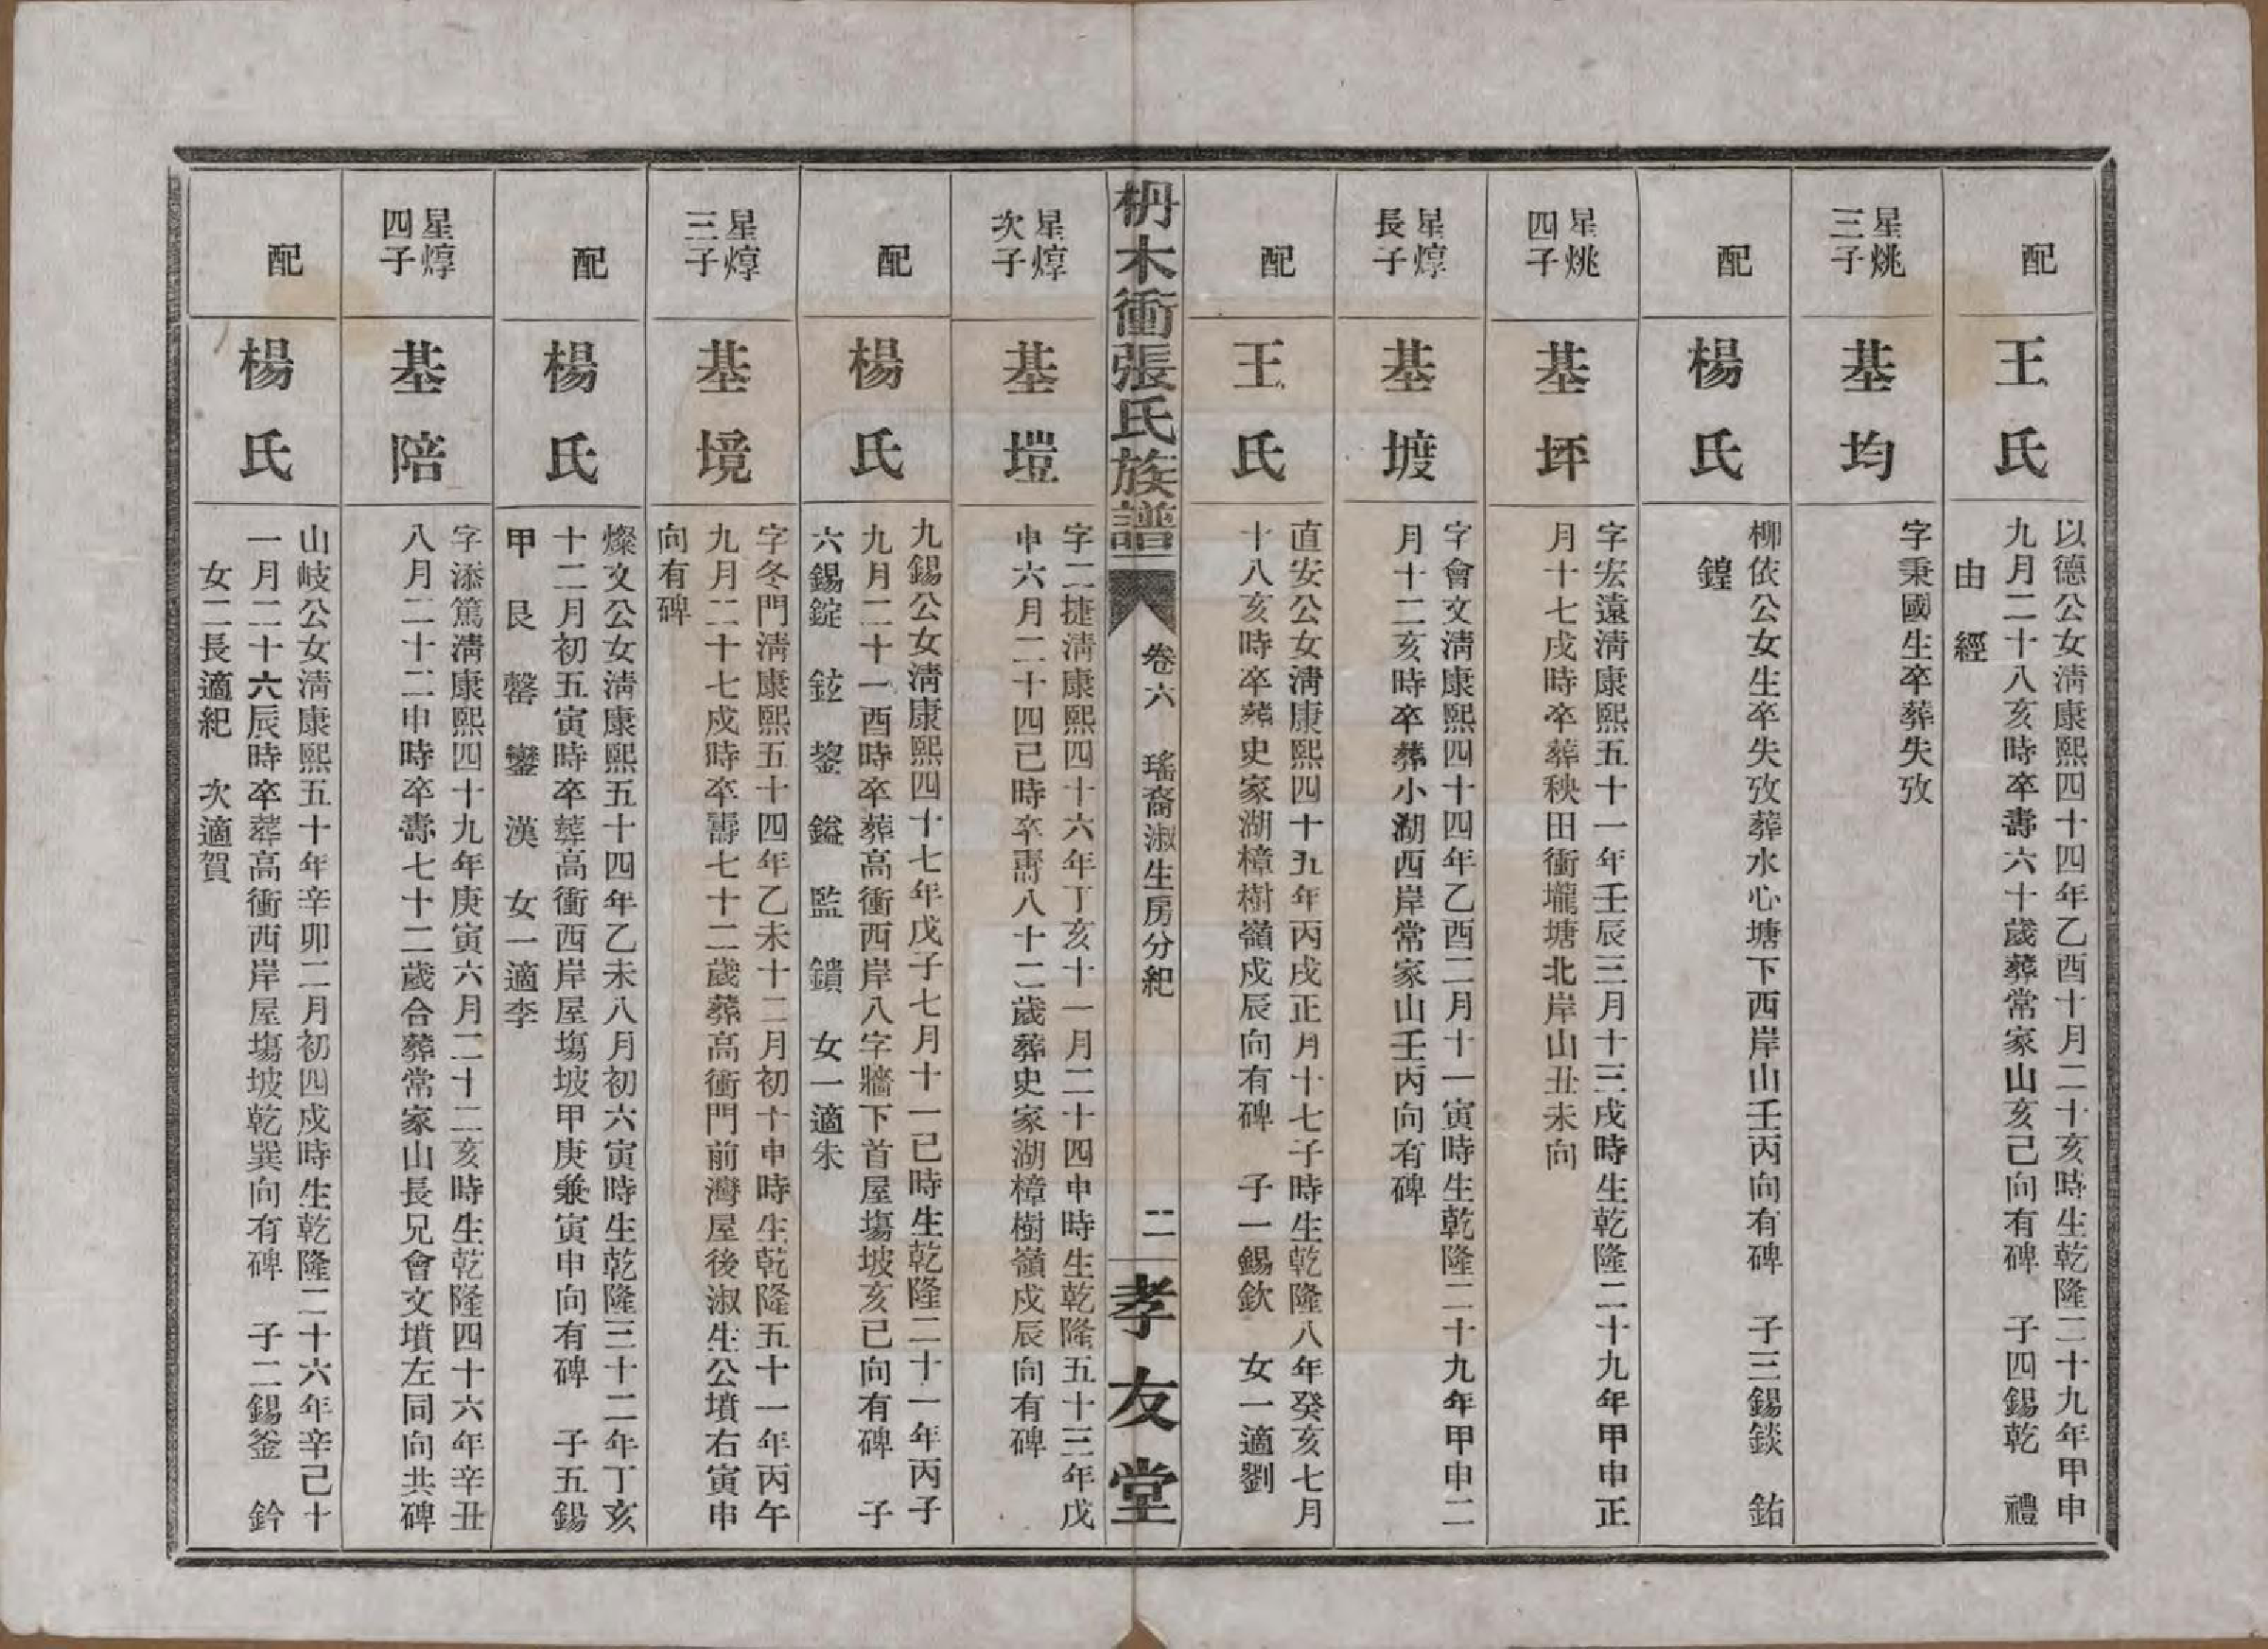 配
王氏
以德公女清康熙四十四年乙酉十月二十亥時生乾隆二十九年甲申
九月二十八亥時卒壽六十歲葬常家山亥己向有碑　子四錫乾　禮
由　經
星烑
三子
基均
字秉國生卒葬失攷
配
楊氏
柳依公女生卒失攷葬水心塘下西岸山壬丙向有碑　子三錫錟　鈷
鍠
星烑
四子
基坪
字宏遠清康熙五十一年壬辰三月十三戌時生乾隆二十九年甲申正
月十七戌時卒葬秧田衝壠塘北岸山丑未向
星焞
長子
基塽
字會文清康熙四十四年乙酉二月十一寅時生乾隆二十九年甲申二
月十二亥時卒葬小湖西岸常家山壬丙向有碑
配
王氏
直安公女清康熙四十九年丙戌正月十七子時生乾隆八年癸亥七月
十八亥時卒葬史家湖樟樹嶺戍辰向有碑　子一錫欽　女一適劉
枬木衝張氏族譜
卷六　瑤裔淑生房分紀
二
孝友堂
星焞
次子
基塏
字二捷清康熙四十六年丁亥十一月二十四申時生乾隆五十三年戊
申六月二十四已時卒壽八十二歲葬史家湖樟樹嶺戍辰向有碑
配
楊氏
九錫公女清康熙四十七年戊子七月十一已時生乾隆二十一年丙子
九月二十一酉時卒葬高衝西岸八字牆下首屋塲坡亥已向有碑　子
六錫錠　鉉　鋆　鎰　監　鐀　女一適朱
星焞
三子
基境
字冬門清康熙五十四年乙未十二月初十申時生乾隆五十一年丙午
九月二十七戍時卒壽七十二歲葬高衝門前灣屋後淑生公墳右寅申
向有碑
配
楊氏
燦文公女清康熙五十四年乙未八月初六寅時生乾隆三十二年丁亥
十二月初五寅時卒葬高衝西岸屋塲坡甲庚兼寅申向有碑　子五錫
甲　艮　罄　鑾　漢　女一適李
星焞
四子
基陪
字添篤清康熙四十九年庚寅六月二十二亥時生乾隆四十六年辛丑
八月二十二申時卒壽七十二歲合葬常家山長兄會文墳左同向共碑
配
楊氏
山岐公女清康熙五十年辛卯二月初四戍時生乾隆二十六年辛己十
一月二十六辰時卒葬高衝西岸屋塲坡乾巽向有碑　子二錫釜　鈐
女二長適紀　次適賀